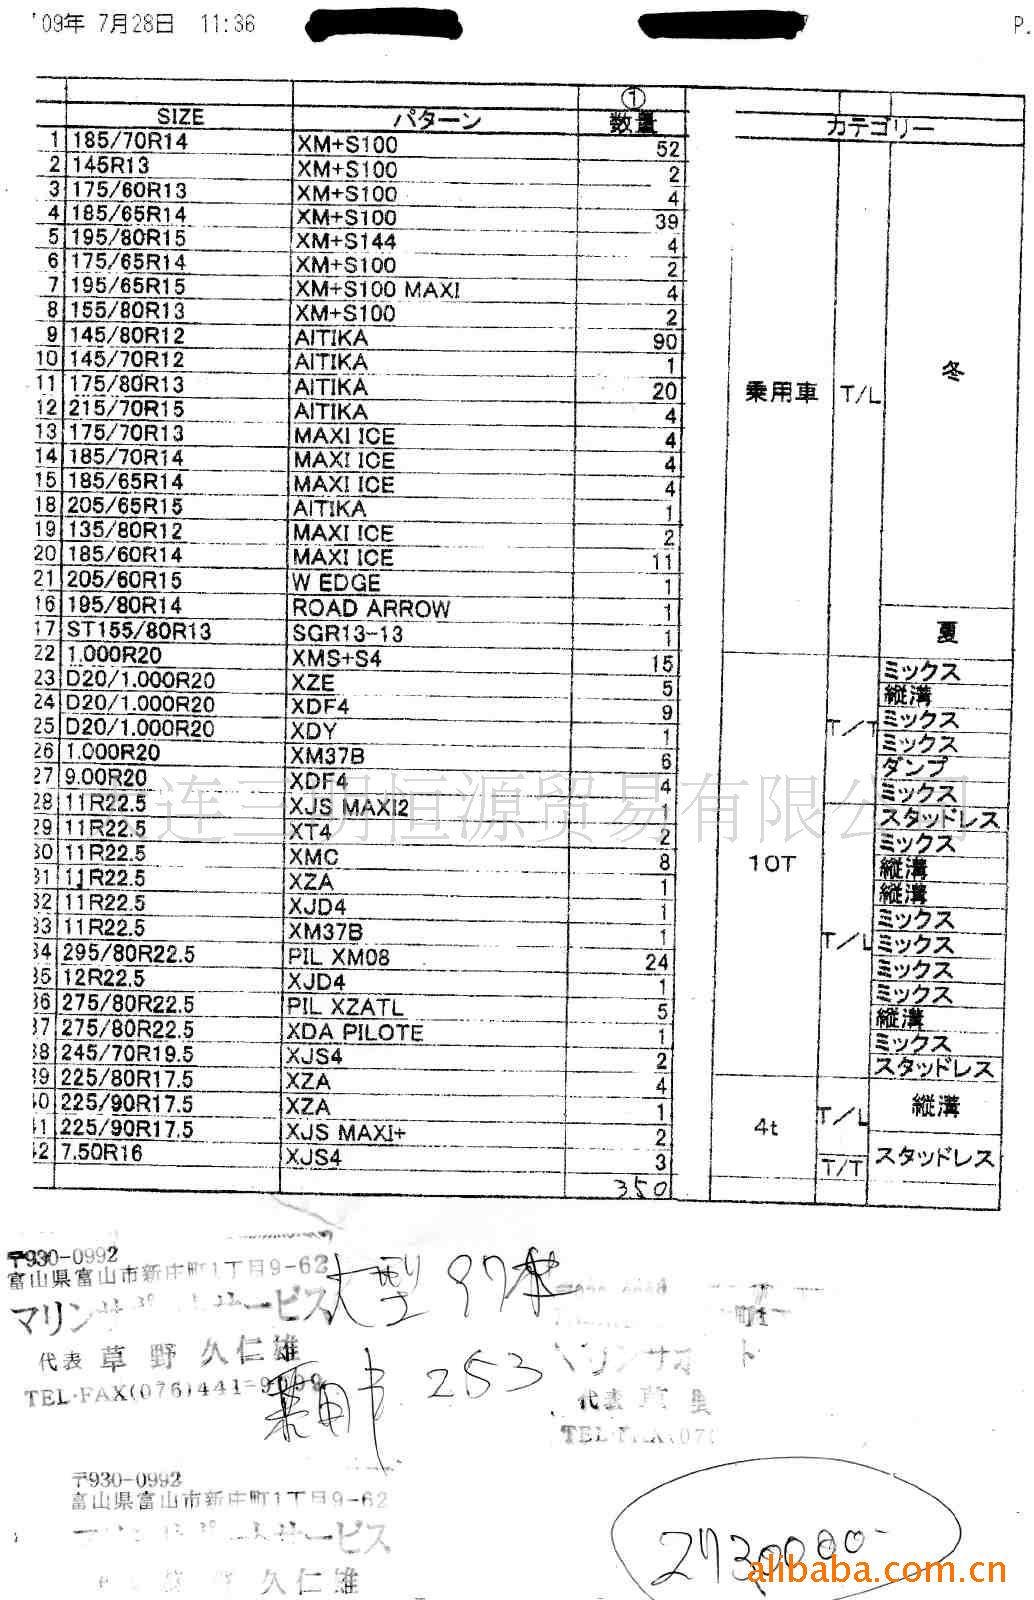 '09年 7月28日 11:36 P.
①
SIZE パターン 数量 カテゴリー
1 185/70R14 XM+S100 52
2 145R13 XM+S100 2
3 175/60R13 XM+S100 4
4 185/65R14 XM+S100 39
5 195/80R15 XM+S144 4
6 175/65R14 XM+S100 2
7 195/65R15 XM+S100 MAXI 4
8 155/80R13 XM+S100 2
9 145/80R12 AITIKA 90
10 145/70R12 AITIKA 1 冬
11 175/80R13 AITIKA 20 乗用車 T/L
12 215/70R15 AITIKA 4
13 175/70R13 MAXI ICE 4
14 185/70R14 MAXI ICE 4
15 185/65R14 MAXI ICE 4
18 205/65R15 AITIKA 1
19 135/80R12 MAXI ICE 2
20 185/60R14 MAXI ICE 11
21 205/60R15 W EDGE 1
16 195/80R14 ROAD ARROW 1
17 ST155/80R13 SGR13-13 1 夏
22 1.000R20 XMS+S4 15 ミックス
23 D20/1.000R20 XZE 5 縦溝
24 D20/1.000R20 XDF4 9 T/T ミックス
25 D20/1.000R20 XDY 1 ミックス
26 1.000R20 XM37B 6 ダンプ
27 9.00R20 XDF4 4 ミックス
28 11R22.5 XJS MAXI2 1 スタッドレス
29 11R22.5 XT4 2 ミックス
30 11R22.5 XMC 8 10T 縦溝
31 11R22.5 XZA 1 縦溝
32 11R22.5 XJD4 1 ミックス
33 11R22.5 XM37B 1 T/L ミックス
34 295/80R22.5 PIL XM08 24 ミックス
35 12R22.5 XJD4 1 ミックス
36 275/80R22.5 PIL XZATL 5 縦溝
37 275/80R22.5 XDA PILOTE 1 ミックス
38 245/70R19.5 XJS4 2 スタッドレス
39 225/80R17.5 XZA 4
40 225/90R17.5 XZA 1 4t T/L 縦溝
41 225/90R17.5 XJS MAXI+ 2
42 7.50R16 XJS4 3 T/T スタッドレス
350
连三明恒源贸易有限公司
〒930-0992
富山県富山市新庄町1丁目9-62
マリンサポートサービス
代表 草野 久仁雄
TEL・FAX(076)441-9099
大型 97本
乗用車 253
マリンサポート
代表 草野
TEL・FAX(076
〒930-0992
富山県富山市新庄町1丁目9-62
マリンサポートサービス
久仁雄
2730000-
alibaba.com.cn